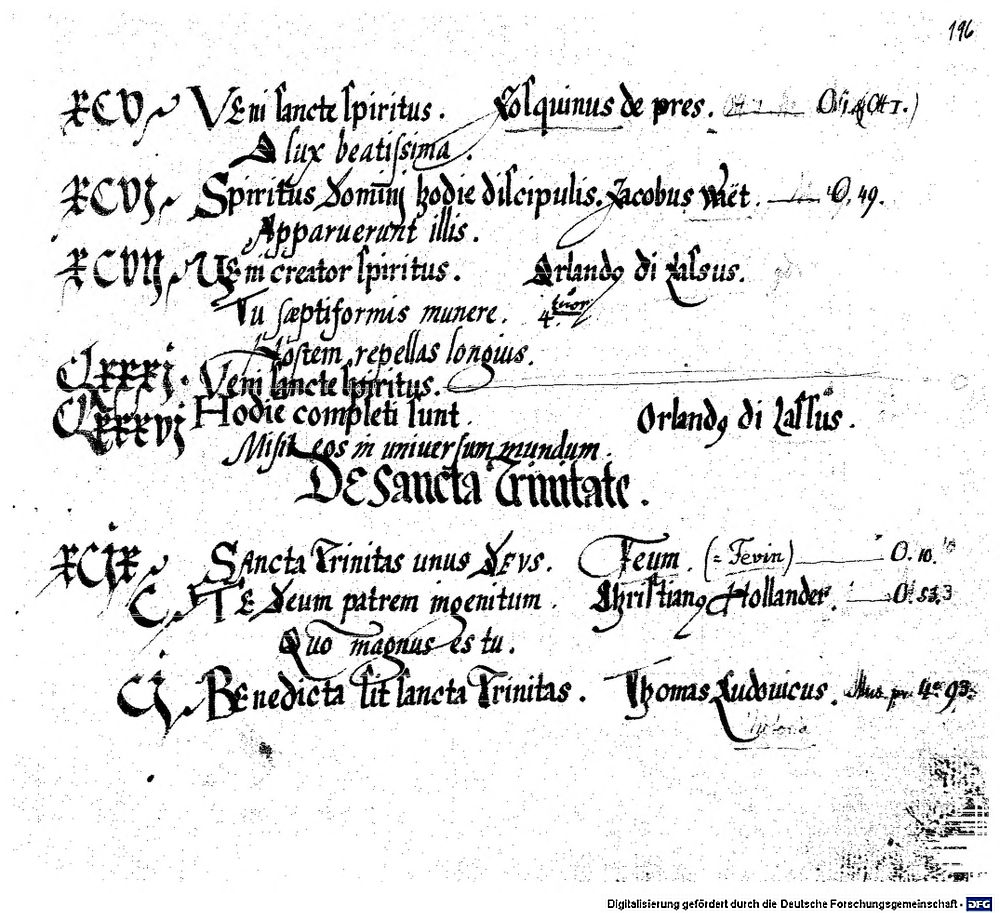 196
XCV Veni sancte spiritus. Josquinus de pres.
O lux beatissima.
XCVJ Spiritus Dominj hodie discipulis. Jacobus Waët. O. 49.
Apparuerunt illis.
XCVIJ Veni creator spiritus. Orlandꝰ di Lassus.
Tu sæptiformis munere. 4tuor
Hostem repellas longius.
CLxxxj. Veni sancte spiritus.
CLxxxvj Hodie completi sunt. Orlandꝰ di Lassus.
Misit eos in universum mundum.
De Sancta Trinitate.
XCIX Sancta Trinitas unus Deus. Feum. (= Fevin) O. 10.
C. Te Deum patrem ingenitum. Christianꝰ Hollander. O. 53
Quo magnus es tu.
Cj Benedicta sit sancta Trinitas. Thomas Ludovicus. Mus. pr. 4° 93.
Digitalisierung gefördert durch die Deutsche Forschungsgemeinschaft - DFG